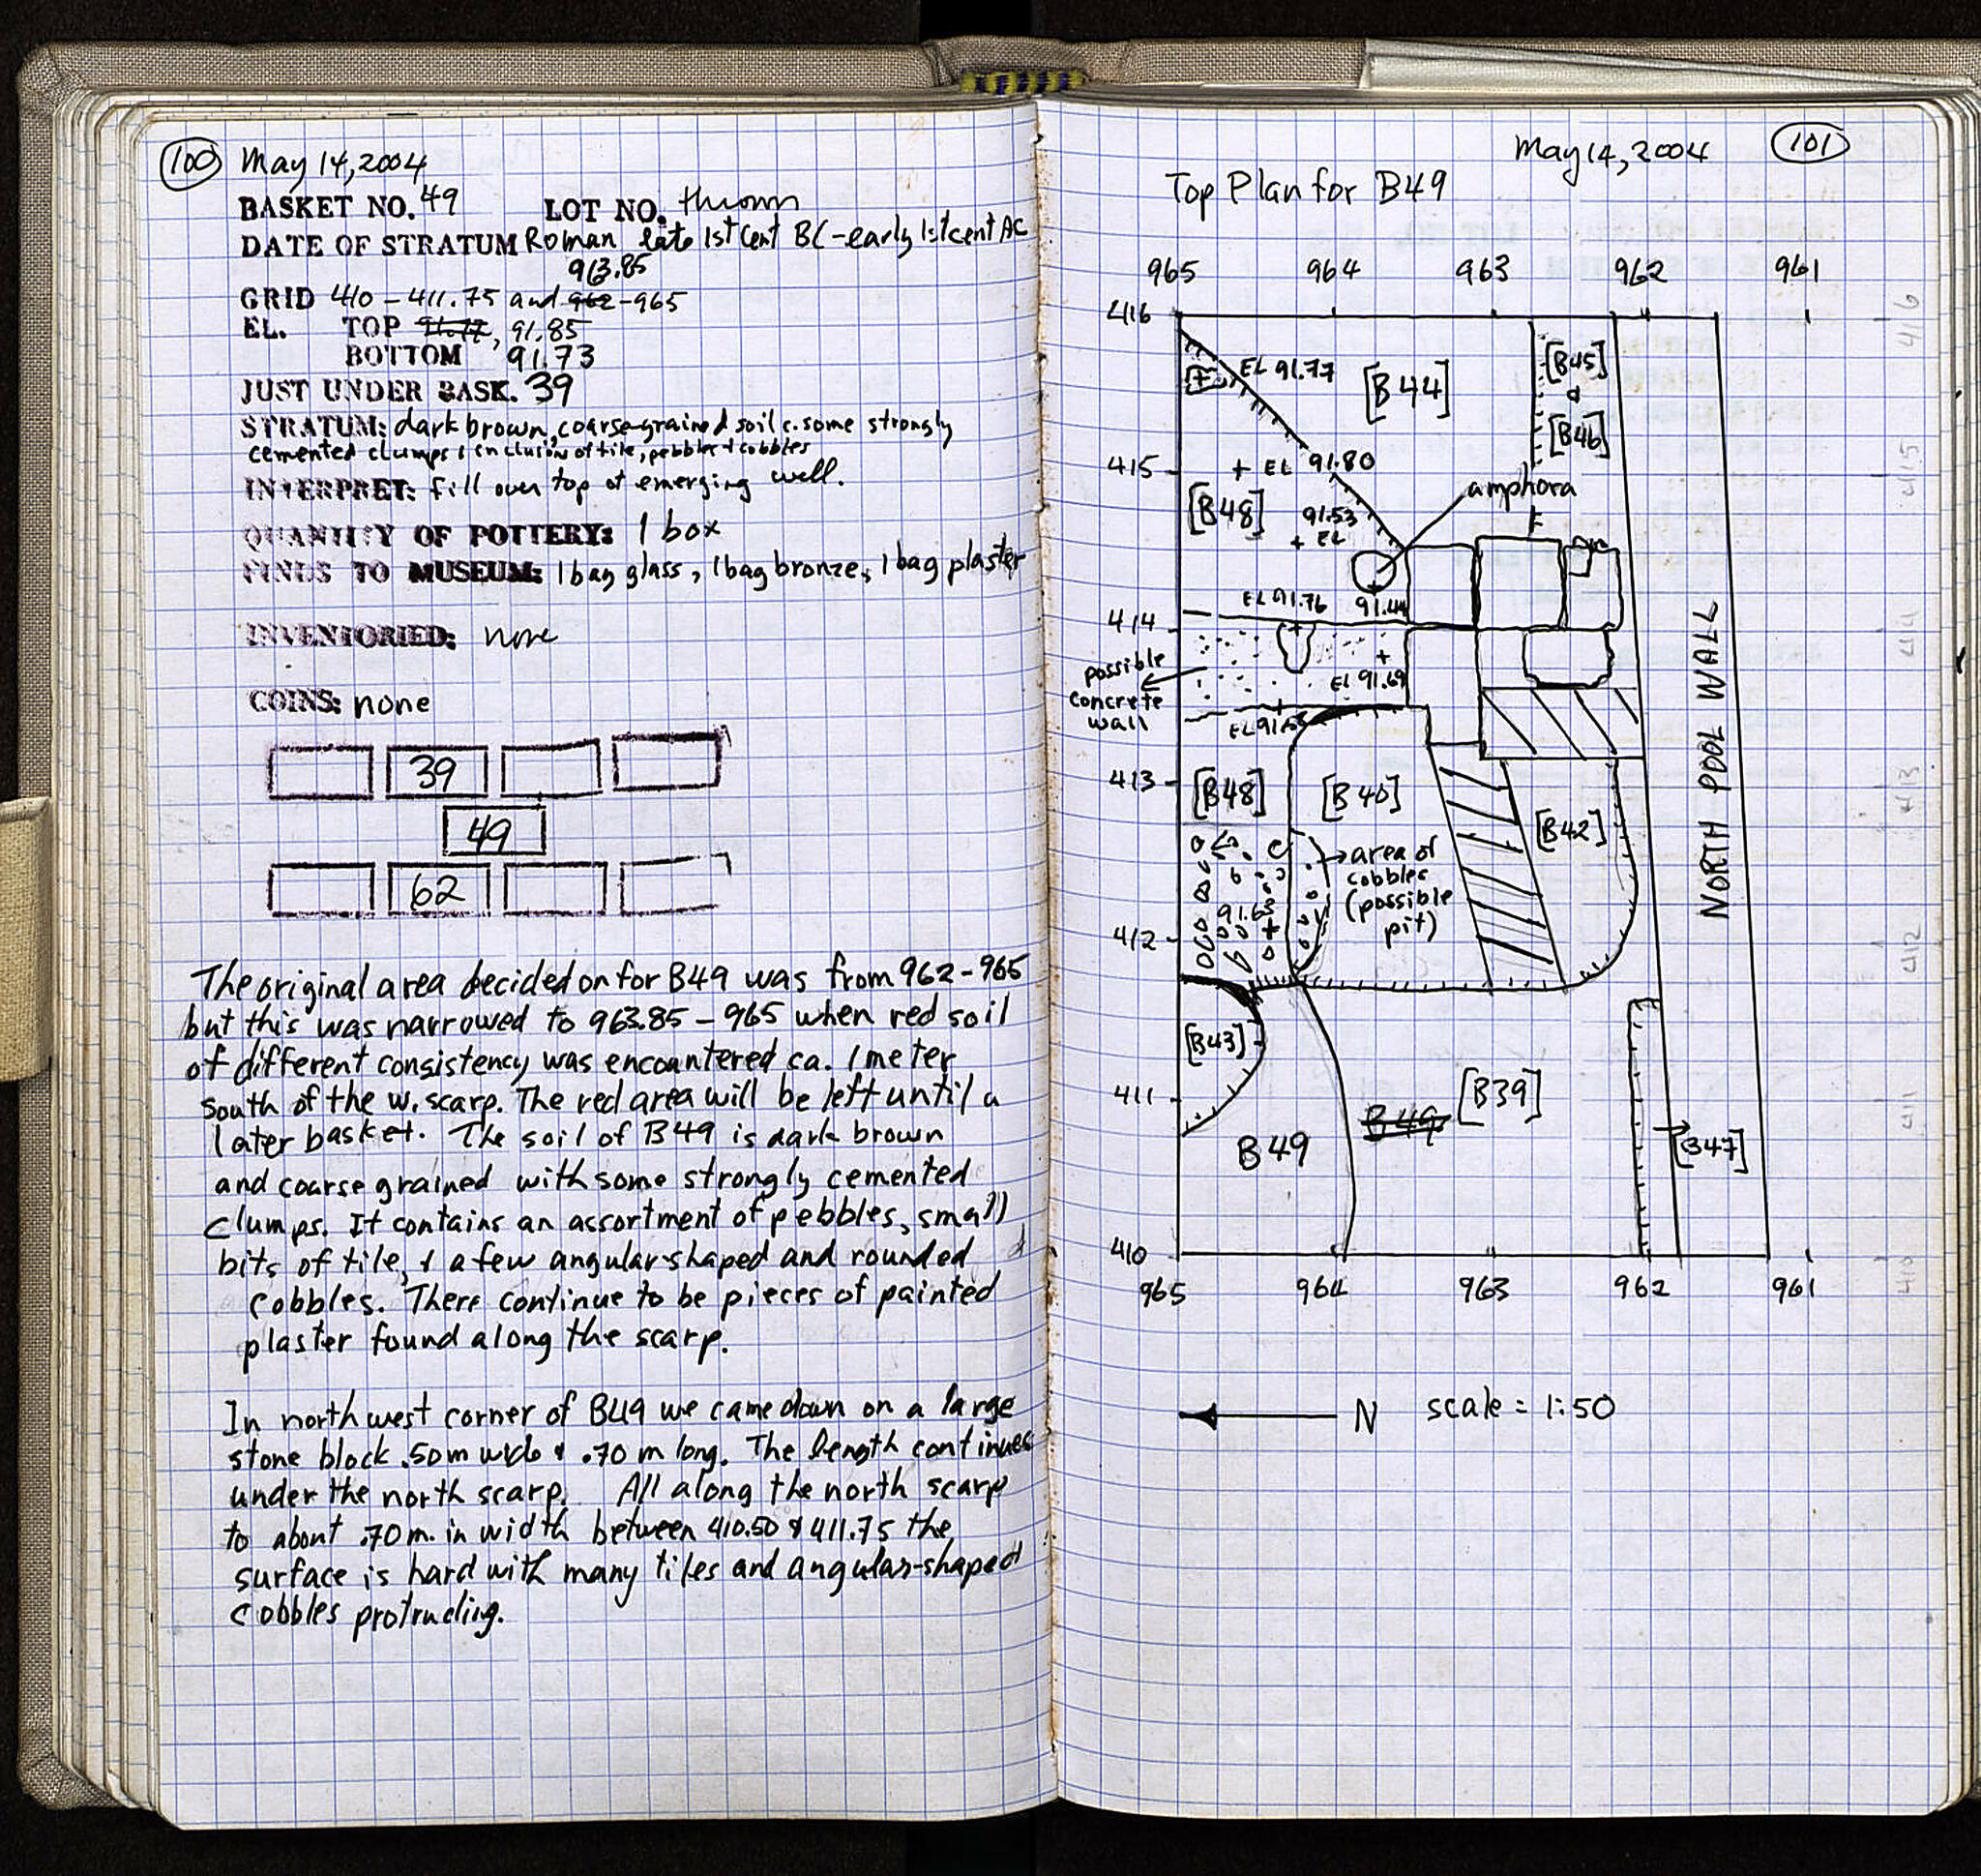 100 May 14, 2004
BASKET NO. 49 LOT NO. thrown
DATE OF STRATUM Roman late 1st cent BC - early 1st cent AC
963.85
GRID 410 - 411.75 and 962 - 965
EL. TOP 91.77, 91.85
BOTTOM 91.73
JUST UNDER BASK. 39
STRATUM: dark brown, coarse-grained soil c. some strongly
cemented clumps & inclusion of tile, pebbles & cobbles
INTERPRET: fill over top of emerging well.
QUANTITY OF POTTERY: 1 box
FINDS TO MUSEUM: 1 bag glass, 1 bag bronze, 1 bag plaster
INVENTORIED: none
COINS: none
39
49
62
The original area decided on for B49 was from 962-965
but this was narrowed to 963.85 - 965 when red soil
of different consistency was encountered ca. 1 meter
south of the w. scarp. The red area will be left until a
later basket. The soil of B49 is dark brown
and coarse grained with some strongly cemented
clumps. It contains an assortment of pebbles, small
bits of tile, & a few angular-shaped and rounded
cobbles. There continue to be pieces of painted
plaster found along the scarp.
In northwest corner of B49 we came down on a large
stone block .50m wide & .70 m long. The length continues
under the north scarp. All along the north scarp
to about .70 m. in width between 410.50 & 411.75 the
surface is hard with many tiles and angular-shaped
cobbles protruding.
May 14, 2004 101
Top Plan for B49
965 964 963 962 961
416
EL 91.77 [B44] [B45]
&
[B46]
415 + EL 91.80
amphora
[B48] 91.53
+ EL
EL 91.76 91.44
414
possible
concrete
wall
EL 91.69
NORTH POOL WALL
413 [B48] [B40] [B42]
area of
cobbles
(possible
pit)
412
[B43]
411 B49 [B39]
B49 [B47]
410
965 964 963 962 961
N scale = 1:50